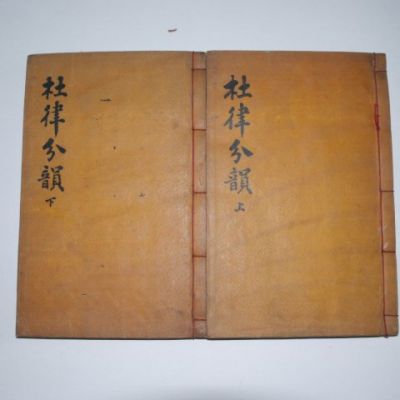 杜律分韻上
杜律分韻下